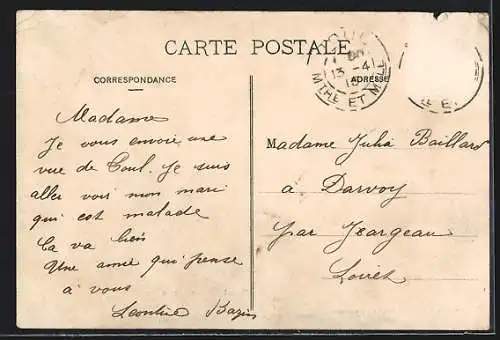 CARTE POSTALE
CORRESPONDANCE
ADRESSE
TOUL
13 - 4
MTHE ET MLLE
ET
Madame
Je vous envoie une
vue de Toul. Je suis
aller voir mon mari
qui est malade
Ca va bien
Une amie qui pense
à vous
Leontine Bazin
Madame Julia Baillard
à Darvoy
par Jeargeau
Loiret